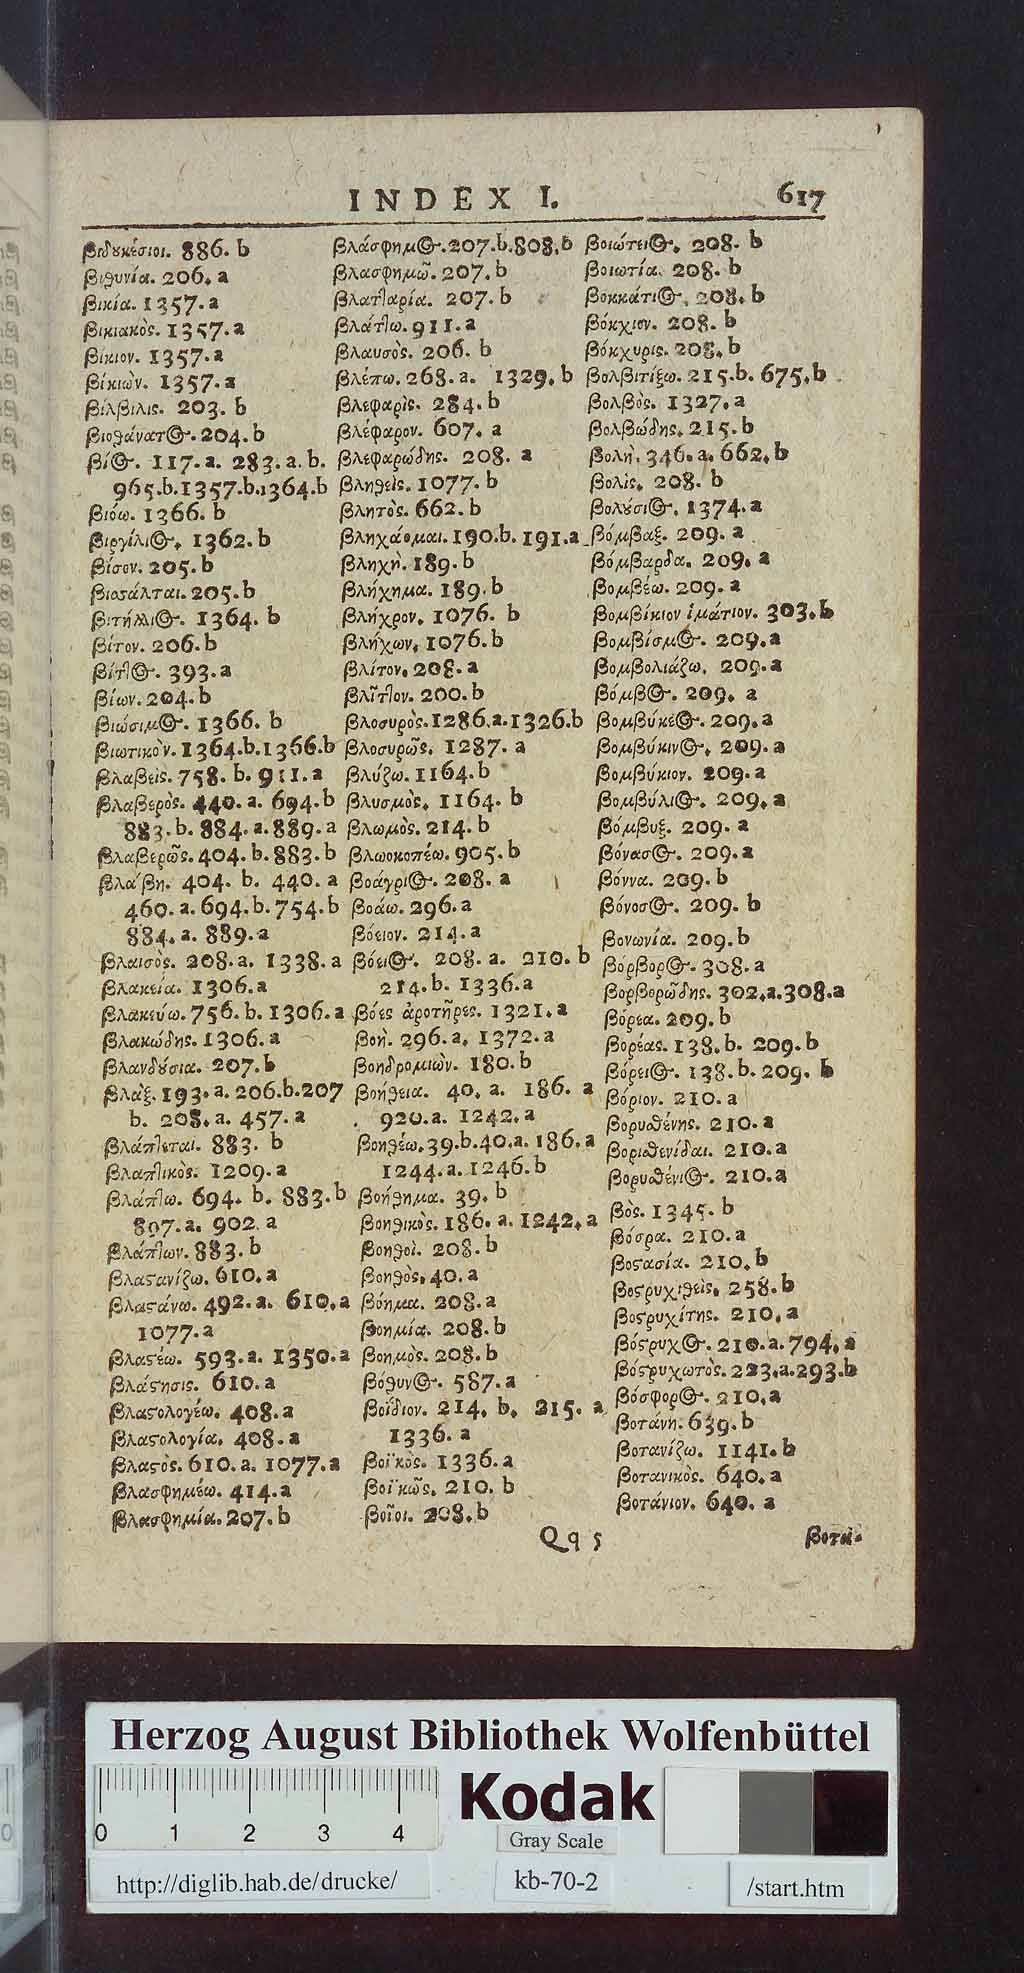 INDEX I. 617
βιδυκέσιοι. 886. b
βιθυνία. 206. a
βικία. 1357. a
βικιακὸς. 1357. a
βίκιον. 1357. a
βίκιὼν. 1357. a
βίλβιλις. 203. b
βιοθάνατ<unk>. 204. b
βί<unk>. 117. a. 283. a. b.
965. b. 1357. b. 1364. b
βιόω. 1366. b
βιργίλι<unk>. 1362. b
βίσον. 205. b
βισάλται. 205. b
βιτήλλι<unk>. 1364. b
βίτον. 206. b
βίτ<unk>. 393. a
βίων. 204. b
βιώσιμ<unk>. 1366. b
βιωτικὸν. 1364. b. 1366. b
βλαβεὶς. 758. b. 911. a
βλαβερὸς. 440. a. 694. b
883. b. 884. a. 889. a
βλαβερῶς. 404. b. 883. b
βλάβη. 404. b. 440. a
460. a. 694. b. 754. b
884. a. 889. a
βλαισὸς. 208. a. 1338. a
βλακεία. 1306. a
βλακεύω. 756. b. 1306. a
βλακώδης. 1306. a
βλανδύσια. 207. b
βλὰξ. 193. a. 206. b. 207
b. 208. a. 457. a
βλάπτεται. 883. b
βλαπτικὸς. 1209. a
βλάπτω. 694. b. 883. b
897. a. 902. a
βλάπτων. 883. b
βλαϛανίζω. 610. a
βλαϛάνω. 492. a. 610. a
1077. a
βλαϛέω. 593. a. 1350. a
βλάϛησις. 610. a
βλαϛολογέω. 408. a
βλαϛολογία. 408. a
βλαϛὸς. 610. a. 1077. a
βλασφημέω. 414. a
βλασφημία. 207. b
βλάσφημ<unk>. 207. b. 808. b
βλασφημῶ. 207. b
βλατταρία. 207. b
βλάττω. 911. a
βλαυσὸς. 206. b
βλέπω. 268. a. 1329. b
βλεφαρὶς. 284. b
βλέφαρον. 607. a
βλεφαρώδης. 208. a
βληθεὶς. 1077. b
βλητὸς. 662. b
βληχάομαι. 190. b. 191. a
βληχὴ. 189. b
βλήχημα. 189. b
βλήχρον. 1076. b
βλήχων. 1076. b
βλίτον. 208. a
βλῖττον. 200. b
βλοσυρὸς. 1286. a. 1326. b
βλοσυρῶς. 1287. a
βλύζω. 1164. b
βλυσμὸς. 1164. b
βλωμὸς. 214. b
βλωοκοπέω. 905. b
βοάγρι<unk>. 208. a
βοάω. 296. a
βόειον. 214. a
βόει<unk>. 208. a. 210. b
214. b. 1336. a
βόες ἀροτῆρες. 1321. a
βοὴ. 296. a. 1372. a
βοηδρομιὼν. 180. b
βοήθεια. 40. a. 186. a
920. a. 1242. a
βοηθέω. 39. b. 40. a. 186. a
1244. a. 1246. b
βοήθημα. 39. b
βοηθικὸς. 186. a. 1242. a
βοηθοὶ. 208. b
βοηθὸς. 40. a
βόημα. 208. a
βοημία. 208. b
βοημὸς. 208. b
βόθυν<unk>. 587. a
βοΐδιον. 214. b. 215. a
1336. a
βοϊκὸς. 1336. a
βοϊκῶς. 210. b
βοῖοι. 208. b
βοιώτει<unk>. 208. b
βοιωτία. 208. b
βοκκάτι<unk>. 208. b
βόκχιον. 208. b
βόκχυρις. 208. b
βολβιτίξω. 215. b. 675. b
βολβὸς. 1327. a
βολβώδης. 215. b
βολὴ. 346. a. 662. b
βολὶς. 208. b
βολυσι<unk>. 1374. a
βόμβαξ. 209. a
βόμβαρδα. 209. a
βομβέω. 209. a
βομβίκιον ἱμάτιον. 303. b
βομβίσμ<unk>. 209. a
βομβολιάζω. 209. a
βόμβ<unk>. 209. a
βομβύκε<unk>. 209. a
βομβύκιν<unk>. 209. a
βομβύκιον. 209. a
βομβύλι<unk>. 209. a
βόμβυξ. 209. a
βόνασ<unk>. 209. a
βόννα. 209. b
βόνοσ<unk>. 209. b
βονωνία. 209. b
βόρβορ<unk>. 308. a
βορβορῶδης. 302. a. 308. a
βόρεα. 209. b
βορέας. 138. b. 209. b
βόρει<unk>. 138. b. 209. b
βόριον. 210. a
βορυσθένης. 210. a
βορισθενίδαι. 210. a
βορυσθένι<unk>. 210. a
βὸς. 1345. b
βόσρα. 210. a
βοϛασία. 210. b
βοϛρυχιθεὶς. 258. b
βοϛρυχίτης. 210. a
βόϛρυχ<unk>. 210. a. 794. a
βόϛρυχωτὸς. 223. a. 293. b
βόσφορ<unk>. 210. a
βοτάνη. 639. b
βοτανίζω. 1141. b
βοτανικὸς. 640. a
βοτάνιον. 640. a
Qq 5 βοτά-
Herzog August Bibliothek Wolfenbüttel
0 1 2 3 4
Kodak
Gray Scale
http://diglib.hab.de/drucke/ kb-70-2 /start.htm